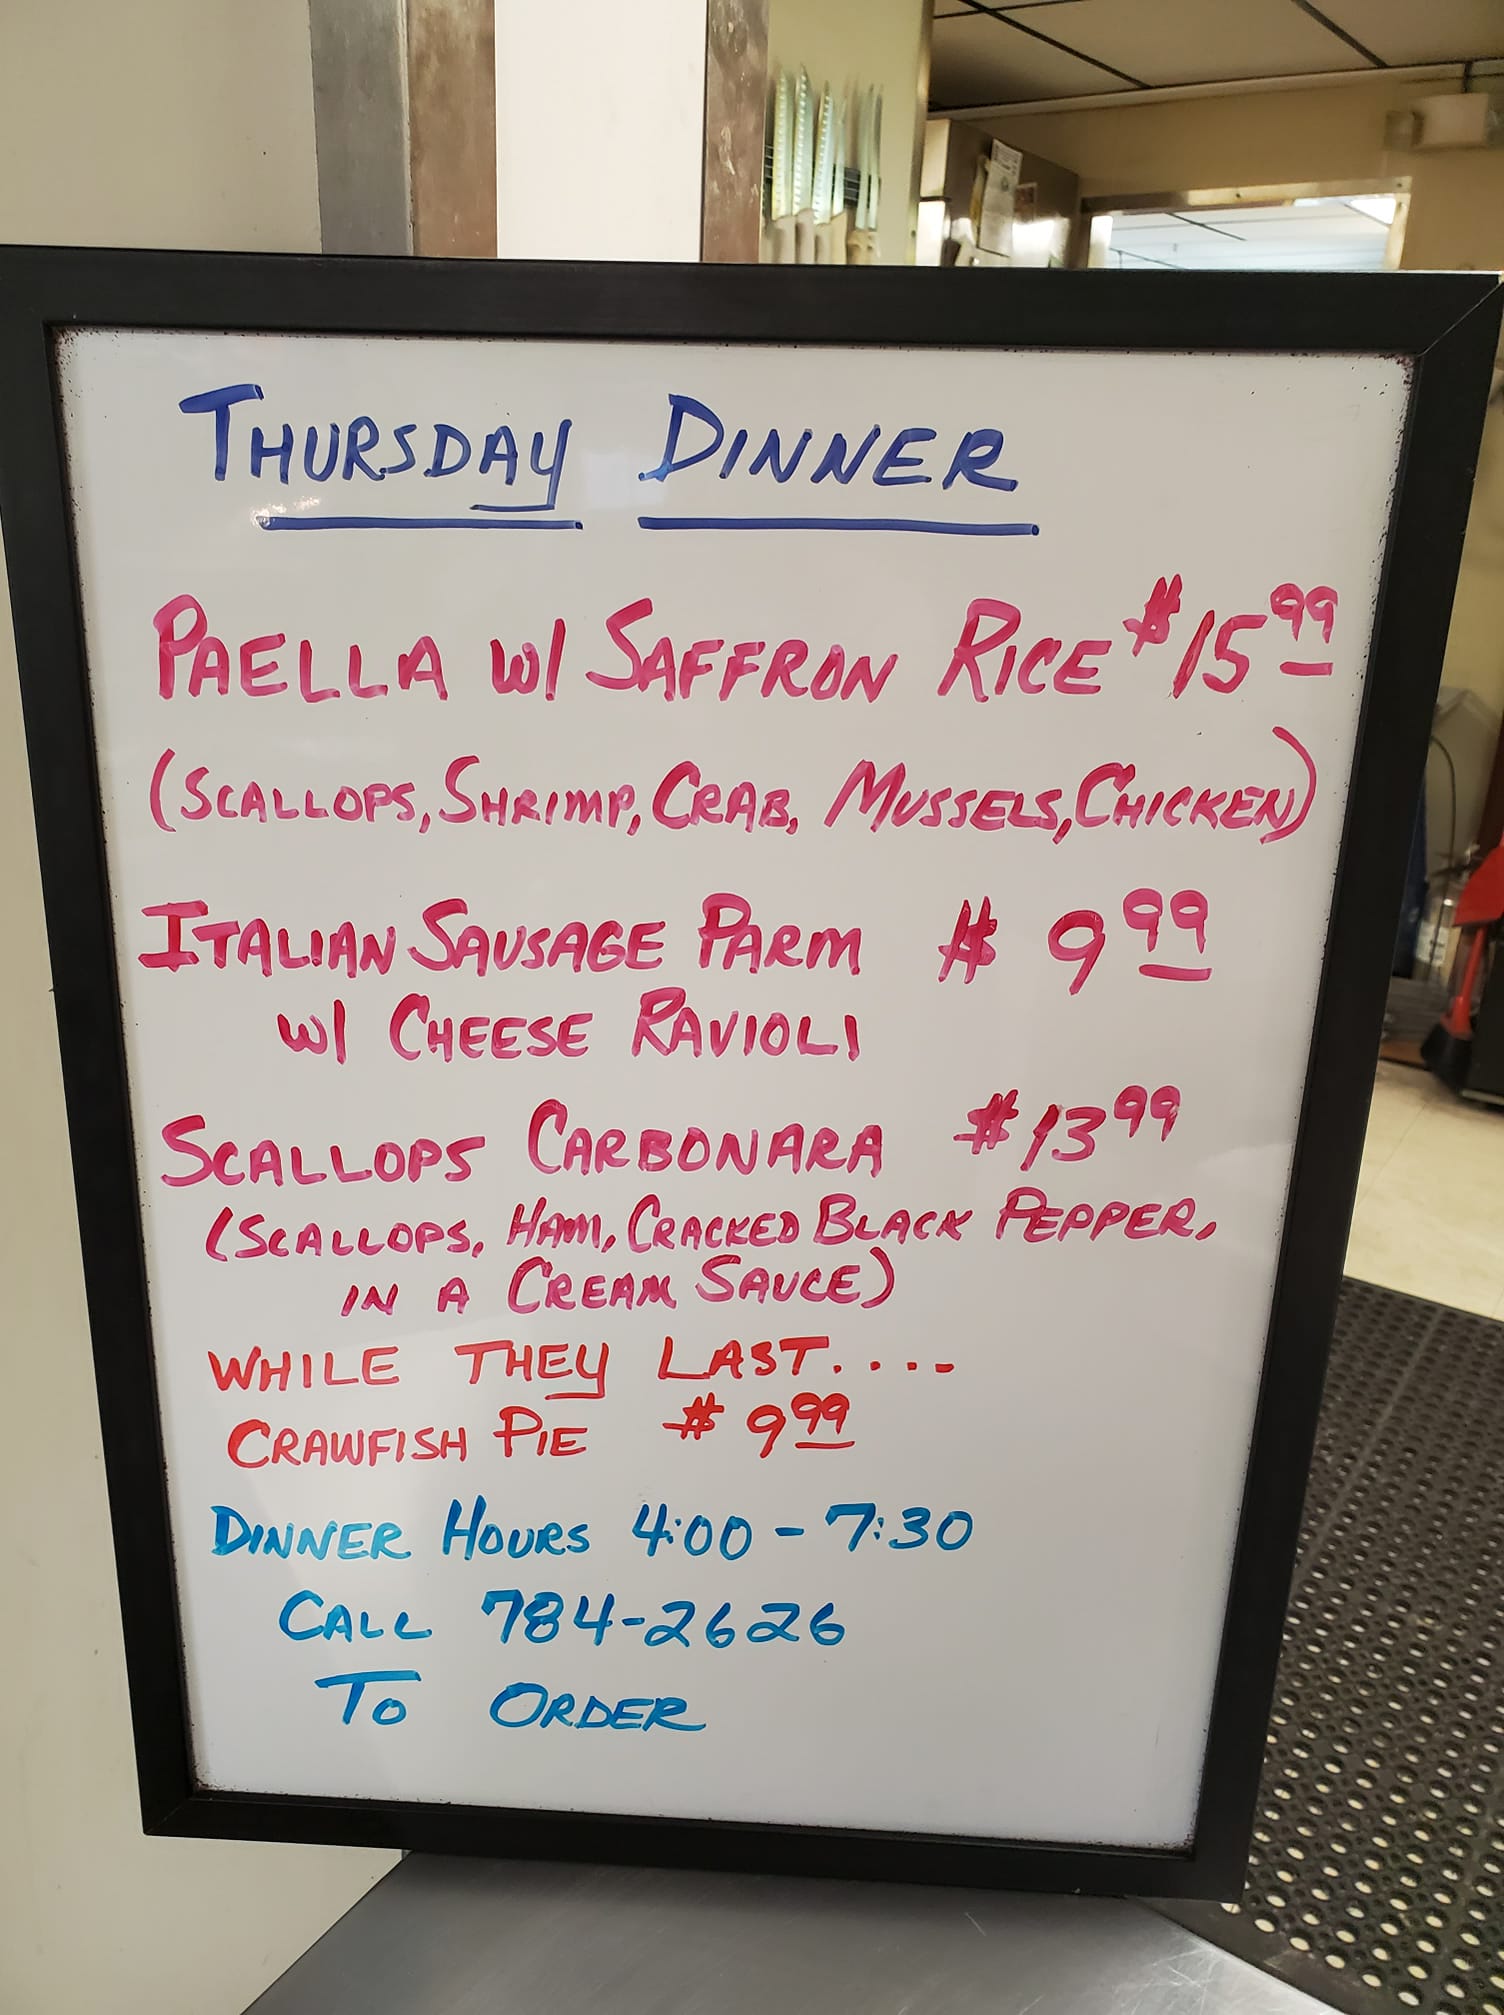 THURSDAY DINNER
PAELLA W/ SAFFRON RICE $15.99
(SCALLOPS, SHRIMP, CRAB, MUSSELS, CHICKEN)
ITALIAN SAUSAGE PARM $9.99
W/ CHEESE RAVIOLI
SCALLOPS CARBONARA $13.99
(SCALLOPS, HAM, CRACKED BLACK PEPPER,
IN A CREAM SAUCE)
WHILE THEY LAST....
CRAWFISH PIE $9.99
DINNER HOURS 4:00 - 7:30
CALL 784-2626
TO ORDER